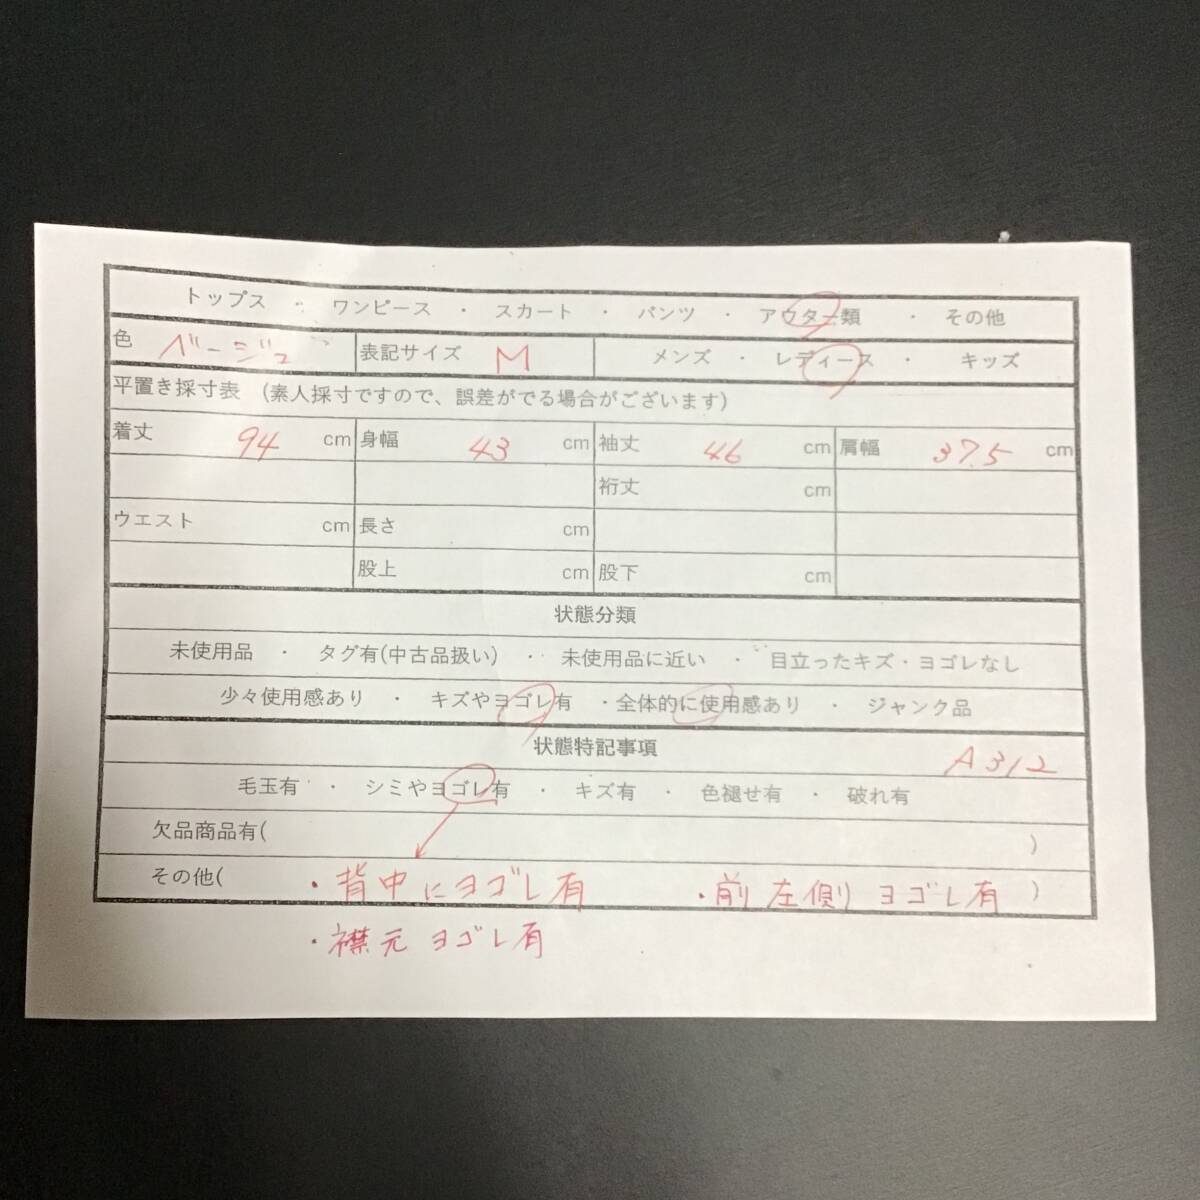 トップス ・ ワンピース ・ スカート ・ パンツ ・ アウター類 ・ その他
色 ベージュ 表記サイズ M メンズ ・ レディース ・ キッズ
平置き採寸表 (素人採寸ですので、誤差がでる場合がございます)
着丈 94 cm 身幅 43 cm 袖丈 46 cm 肩幅 37.5 cm
裄丈 cm
ウエスト cm 長さ cm
股上 cm 股下 cm
状態分類
未使用品 ・ タグ有(中古品扱い) ・ 未使用品に近い ・ 目立ったキズ・ヨゴレなし
少々使用感あり ・ キズやヨゴレ有 ・全体的に使用感あり ・ ジャンク品
状態特記事項 A312
毛玉有 ・ シミやヨゴレ有 ・ キズ有 ・ 色褪せ有 ・ 破れ有
欠品商品有( )
その他( ・背中にヨゴレ有 ・前左側りヨゴレ有 )
・襟元ヨゴレ有